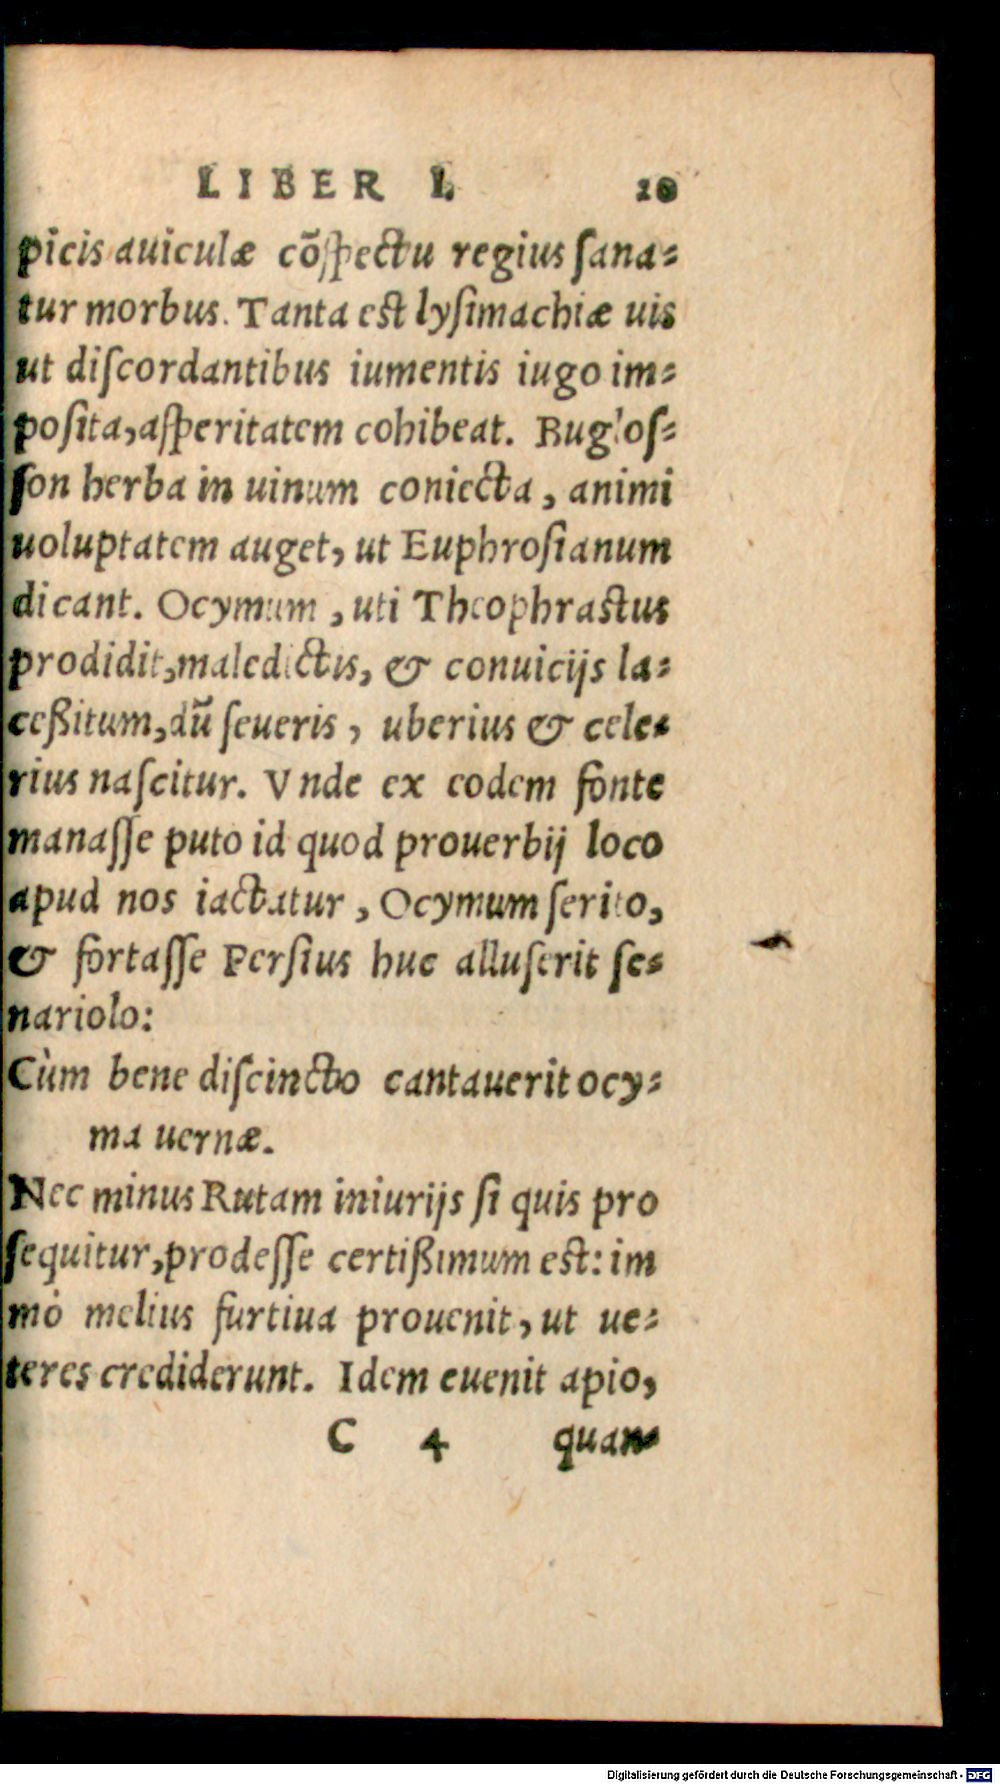 LIBER I. 20
picis auiculæ cōſpectu regius ſana-
tur morbus. Tanta est lyſimachiæ uis
ut diſcordantibus iumentis iugo im-
poſita, aſperitatem cohibeat. Bugloſ-
ſon herba in uinum coniecta, animi
uoluptatem auget, ut Euphroſianum
dicant. Ocymum, uti Theophrastus
prodidit, maledictis, & conuicijs la-
ceßitum, dū ſeueris, uberius & cele-
rius naſcitur. Vnde ex eodem fonte
manaſſe puto id quod prouerbij loco
apud nos iactatur, Ocymum ſerito,
& fortaſſe Perſius huc alluſerit ſe-
nariolo:
Cùm bene diſcincto cantauerit ocy-
ma uernæ.
Nec minus Rutam iniurijs ſi quis pro
ſequitur, prodeſſe certißimum est: im
mò melius furtiua prouenit, ut ue-
teres crediderunt. Idem euenit apio,
C 4 quan-
Digitalisierung gefördert durch die Deutsche Forschungsgemeinschaft - DFG